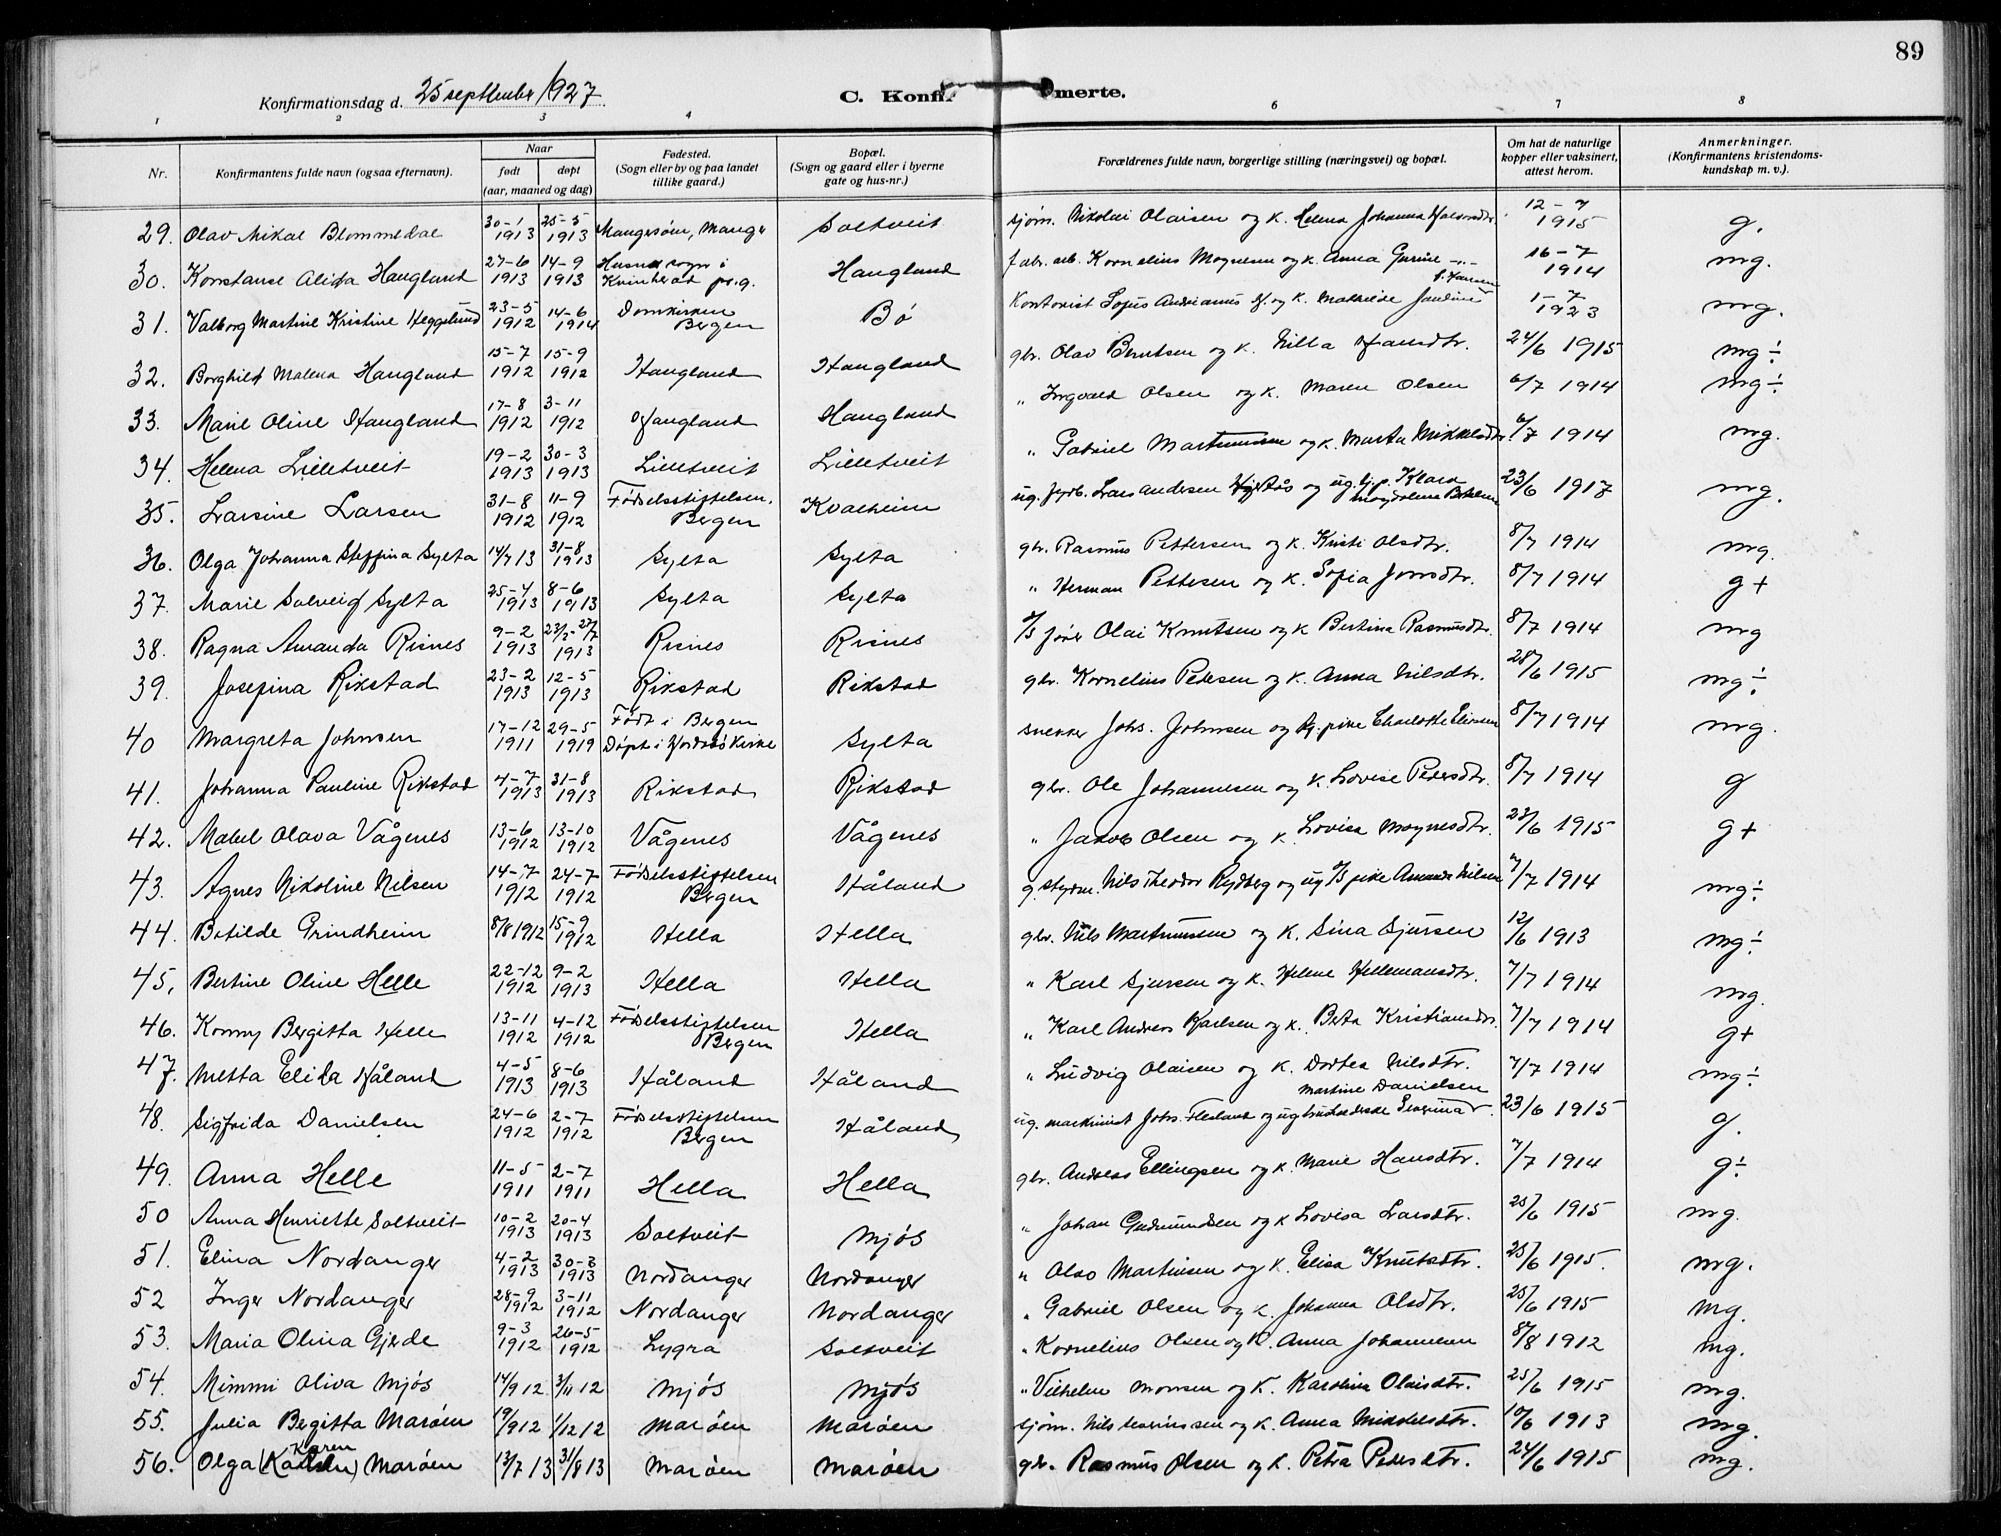 89
Konfirmationsdag d. 25 september 1927
C. Konfirmerte.
1 2 3 4 6 7 8
Nr. Konfirmantens fulde navn (ogsaa efternavn). Naar født døpt (aar, maaned og dag) Fødested. (Sogn eller by og paa landet tillike gaard.) Bopæl. (Sogn og gaard eller i byerne gate og hus-nr.) Forældrenes fulde navn, borgerlige stilling (næringsvei) og bopæl. Om hat de naturlige kopper eller vaksinert, attest herom. Anmerkninger. (Konfirmantens kristendoms-kundskap m. v.).
29. Olav Mikal Blommedal 30-1 1913 25-5 1913 Mangersøen, Manger Soltveit sjøm. Nikolai Olaisen og k. Helena Johanna 12-7 1915 g.
30. Konstanse Alida Haugland 27-6 1913 14-9 1913 Husnes sogn i Kvinherad pr.g. Haugland fabr. arb. Kornelius Mognesen og k. Anna Gurine 16-7 1914 mg.
31. Valborg Martine Kristine Heggelund 23-5 1912 14-6 1914 Domkirken Bergen Bø Kontorist Sofus Andrianus H. og k. Mathilde 1-7 1923 mg.
32. Borghild Malena Haugland 15-7 1912 15-9 1912 Haugland Haugland gbr. Olav Berntsen og k. Nilla Hansdtr. 24/6 1915 mg÷
33. Marie Oline Haugland 17-8 1912 3-11 1912 Haugland Haugland " Ingvald Olsen og k. Maren Olsen 6/7 1914 mg÷
34. Helena Lilletveit 19-2 1913 30-3 1913 Lilletveit Lilletveit " Gabriel Martinussen og k. Marta Mikkelsdtr. 6/7 1914 mg.
35. Larsine Larsen 31-8 1912 11-9 1912 Fødselsstiftelsen, Bergen Kvalheim ug. fyrb. Lars Andersen og ug. tj.p. Klara Magdalena 23/6 1917 mg.
36. Olga Johanna Steffina Sylta 14/7 13 31-8 1913 Sylta Sylta gbr. Rasmus Pettersen og k. Kristi Olsdtr. 8/7 1914 mg.
37. Marie Solveig Sylta 25-4 1913 8-6 1913 Sylta Sylta " Herman Pettersen og k. Sofia Jonsdtr. 8/7 1914 g+
38. Ragna Amanda Risnes 9-2 1913 23/2-27/7 1913 Risnes Risnes fører Olai Knutsen og k Bertina Rasmusdtr. 8/7 1914 mg
39. Josefina Rikstad 23-2 1913 12-5 1913 Rikstad Rikstad gbr. Kornelius Pedersen og k. Anna Nilsdtr. 28/6 1915 mg÷
40 Margreta Johnsen 17-12 1911 29-5 1919 Født i Bergen Døpt i Hordabø Kirke Sylta snekker Johs. Johnsen og pike Charlotte 8/7 1914 mg.
41. Johanna Pauline Rikstad 4-7 1913 31-8 1913 Rikstad Rikstad gbr. Ole Johannesen og k. Lovise Pedersdtr. 8/7 1914 g
42. Mabel Olava Vågenes 13-6 1912 13-10 1912 Vågenes Vågenes " Jakob Olsen og k. Lovisa Mognesdtr. 23/6 1915 g+
43. Agnes Nikoline Nilsen 14-7 1912 24-7 1912 Fødselsstiftelsen Bergen Håland g. styrm. Nils Theodor Rydberg og ug pike Amanda Nilsen 7/7 1914 mg÷
44. Betilde Grindheim 8/8 1912 15-9 1912 Hella Hella gbr. Nils Martinussen og k. Sina Sjursen 12/6 1913 mg÷
45. Bertine Oline Helle 22-12 1912 9-2 1913 Hella Hella " Karl Sjursen og k. Helene Hellemansdtr. 7/7 1914 mg.
46. Konny Bergitta Helle 13-11 1912 4-12 1912 Fødselsstiftelsen Bergen Hella " Karl Andreas Karlsen og k. Berta Kristiansdtr. 7/7 1914 g+
47. Metta Elida Håland 4-5 1913 8-6 1913 Håland Håland " Ludvig Olaisen og k. Dortea Nilsdtr. 7/7 1914 mg÷
48. Sigfrida Danielsen 24-6 1912 2-7 1912 Fødselsstiftelsen Bergen Håland ug. maskinist Johs. Flesland og ug Severina Martine Danielsen 23/6 1915 g.
49. Anna Helle 11-5 1911 2-7 1911 Hella Hella gbr. Andreas Ellingsen og k. Marie Hansdtr. 7/7 1914 g÷
50 Anna Henriette Soltveit 10-2 1913 20-4 1913 Soltveit Mjøs " Johan Gudmundsen og k Lovisa Larsdtr. 25/6 1915 mg.
51. Elina Nordanger 4-2 1913 30-3 1913 Nordanger Nordanger " Olav Martinsen og k. Elisa Knutsdtr. 25/6 1915. mg.
52 Inger Nordanger 28-9 1912 3-11 1912 Nordanger Nordanger " Gabriel Olsen og k. Johanna Olsdtr. 25/6 1915 mg.
53. Maria Olina Gjerde 9-3 1912 26-5 1912 Lygra Soltveit " Kornelius Olsen og k. Anna Johannesen 8/8 1912 mg.
54. Mimmi Oliva Mjøs 14/9 12 3/11 12 Mjøs Mjøs " Vilhelm Monsen og k. Karolina Olaisdtr. 25/6 1915 mg.
55. Julia Bergitta Marøen 19/9 12 1/12 12 Marøen Marøen sjøm. Nils og k. Anna Mikkelsdtr. 10/6 1913 mg.
56. Olga (Karen) Marøen 13/7 13 31/8 13 Marøen Marøen gbr. Rasmus Olsen og k. Petra Pedersdtr. 24/6 1915 mg.